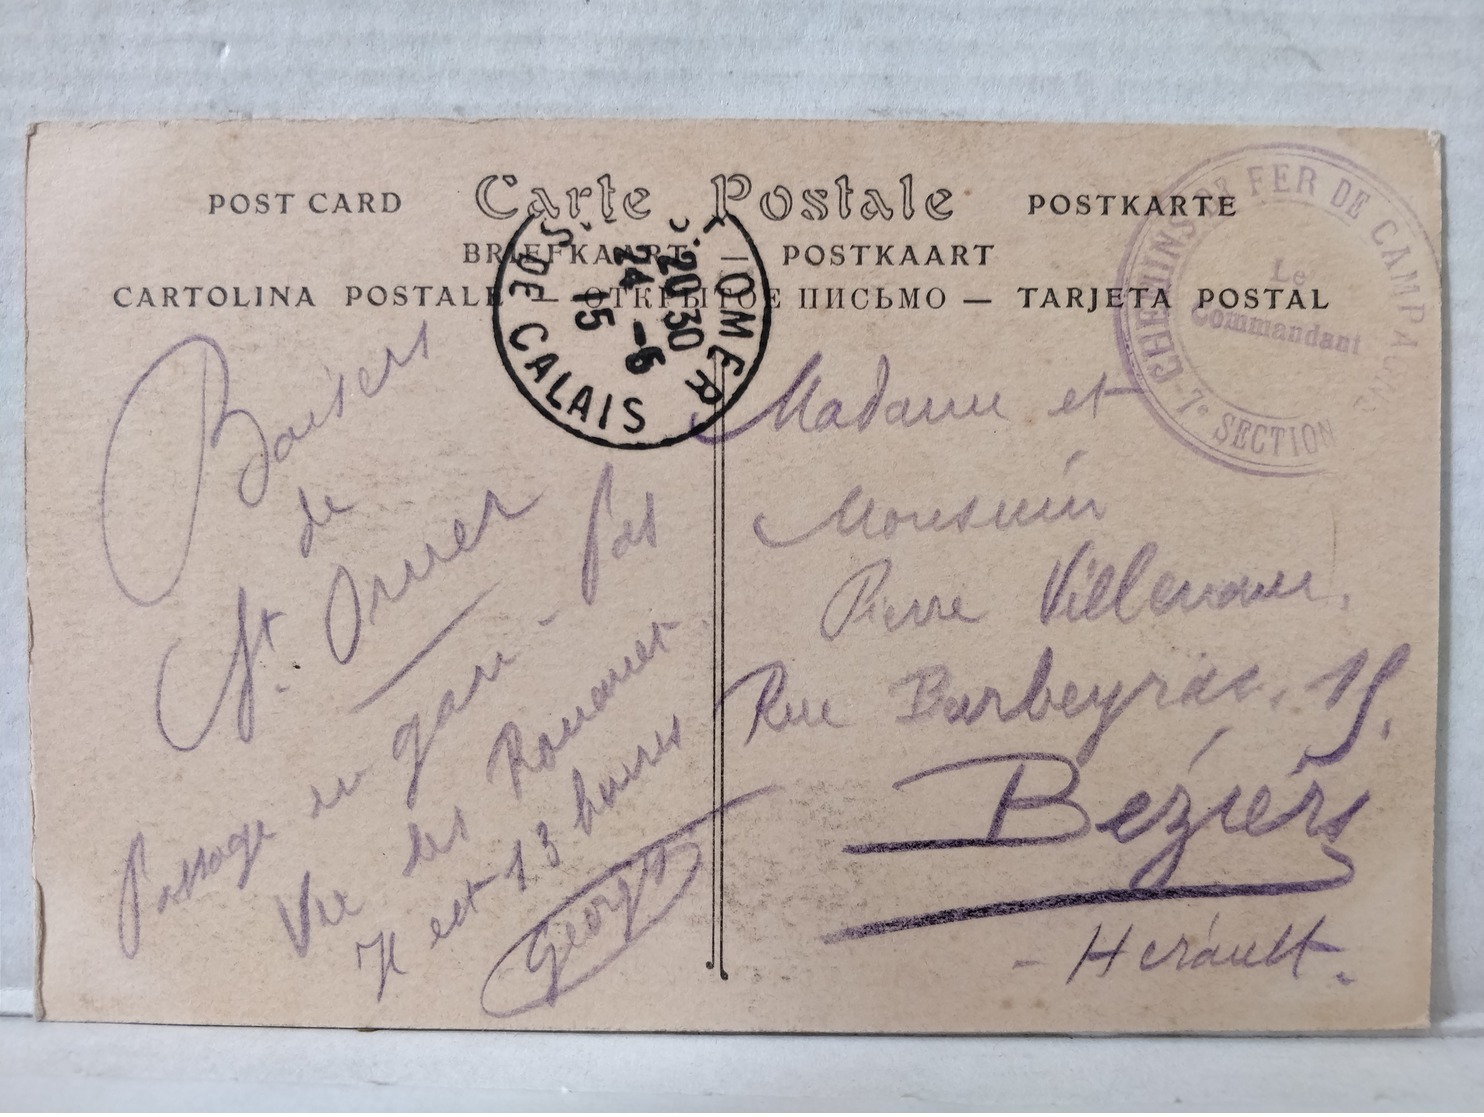 POST CARD Carte Postale POSTKARTE
BRIEFKAART — POSTKAART
CARTOLINA POSTALE — ОТКРЫТОЕ ПИСЬМО — TARJETA POSTAL
CHEMINS DE FER DE CAMPAGNE
Le
Commandant
7e SECTION
OMER
20 30
24 -6
15
DE CALAIS
Baisers
de
St. Omer
Passage en gare - Pas
Vu les Romanet
Il est 13 heures
Georges
Madame et
Monsieur
Pierre
Rue Barbeyrac, 15,
Béziers
- Hérault.